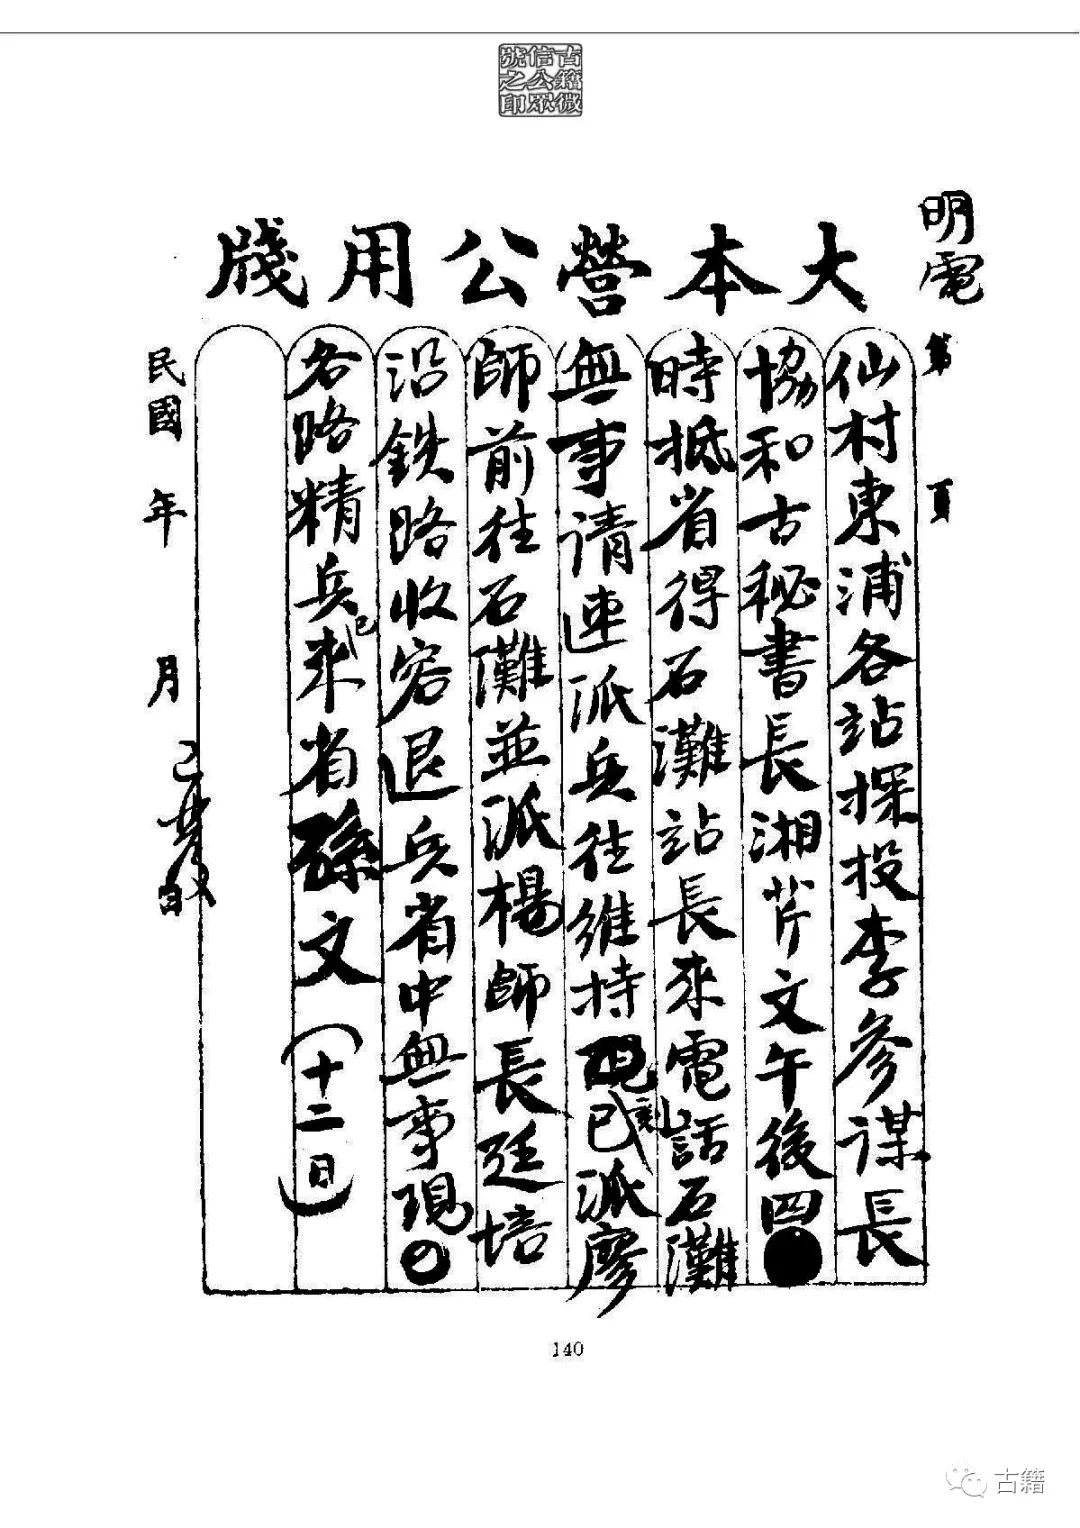 古籍微
信公眾
號之印
明電
大本營公用牋
第 頁
仙村東浦各站探投李參謀長
協和古秘書長湘芹文午後四
時抵省得石灘站長來電話石灘
無事請速派兵往維持刻已派廖
師前往石灘並派楊師長廷培
沿鐵路收容退兵省中無事現
各路精兵已來省孫文（十二日）
民國 年 月 日
已發
140
古籍